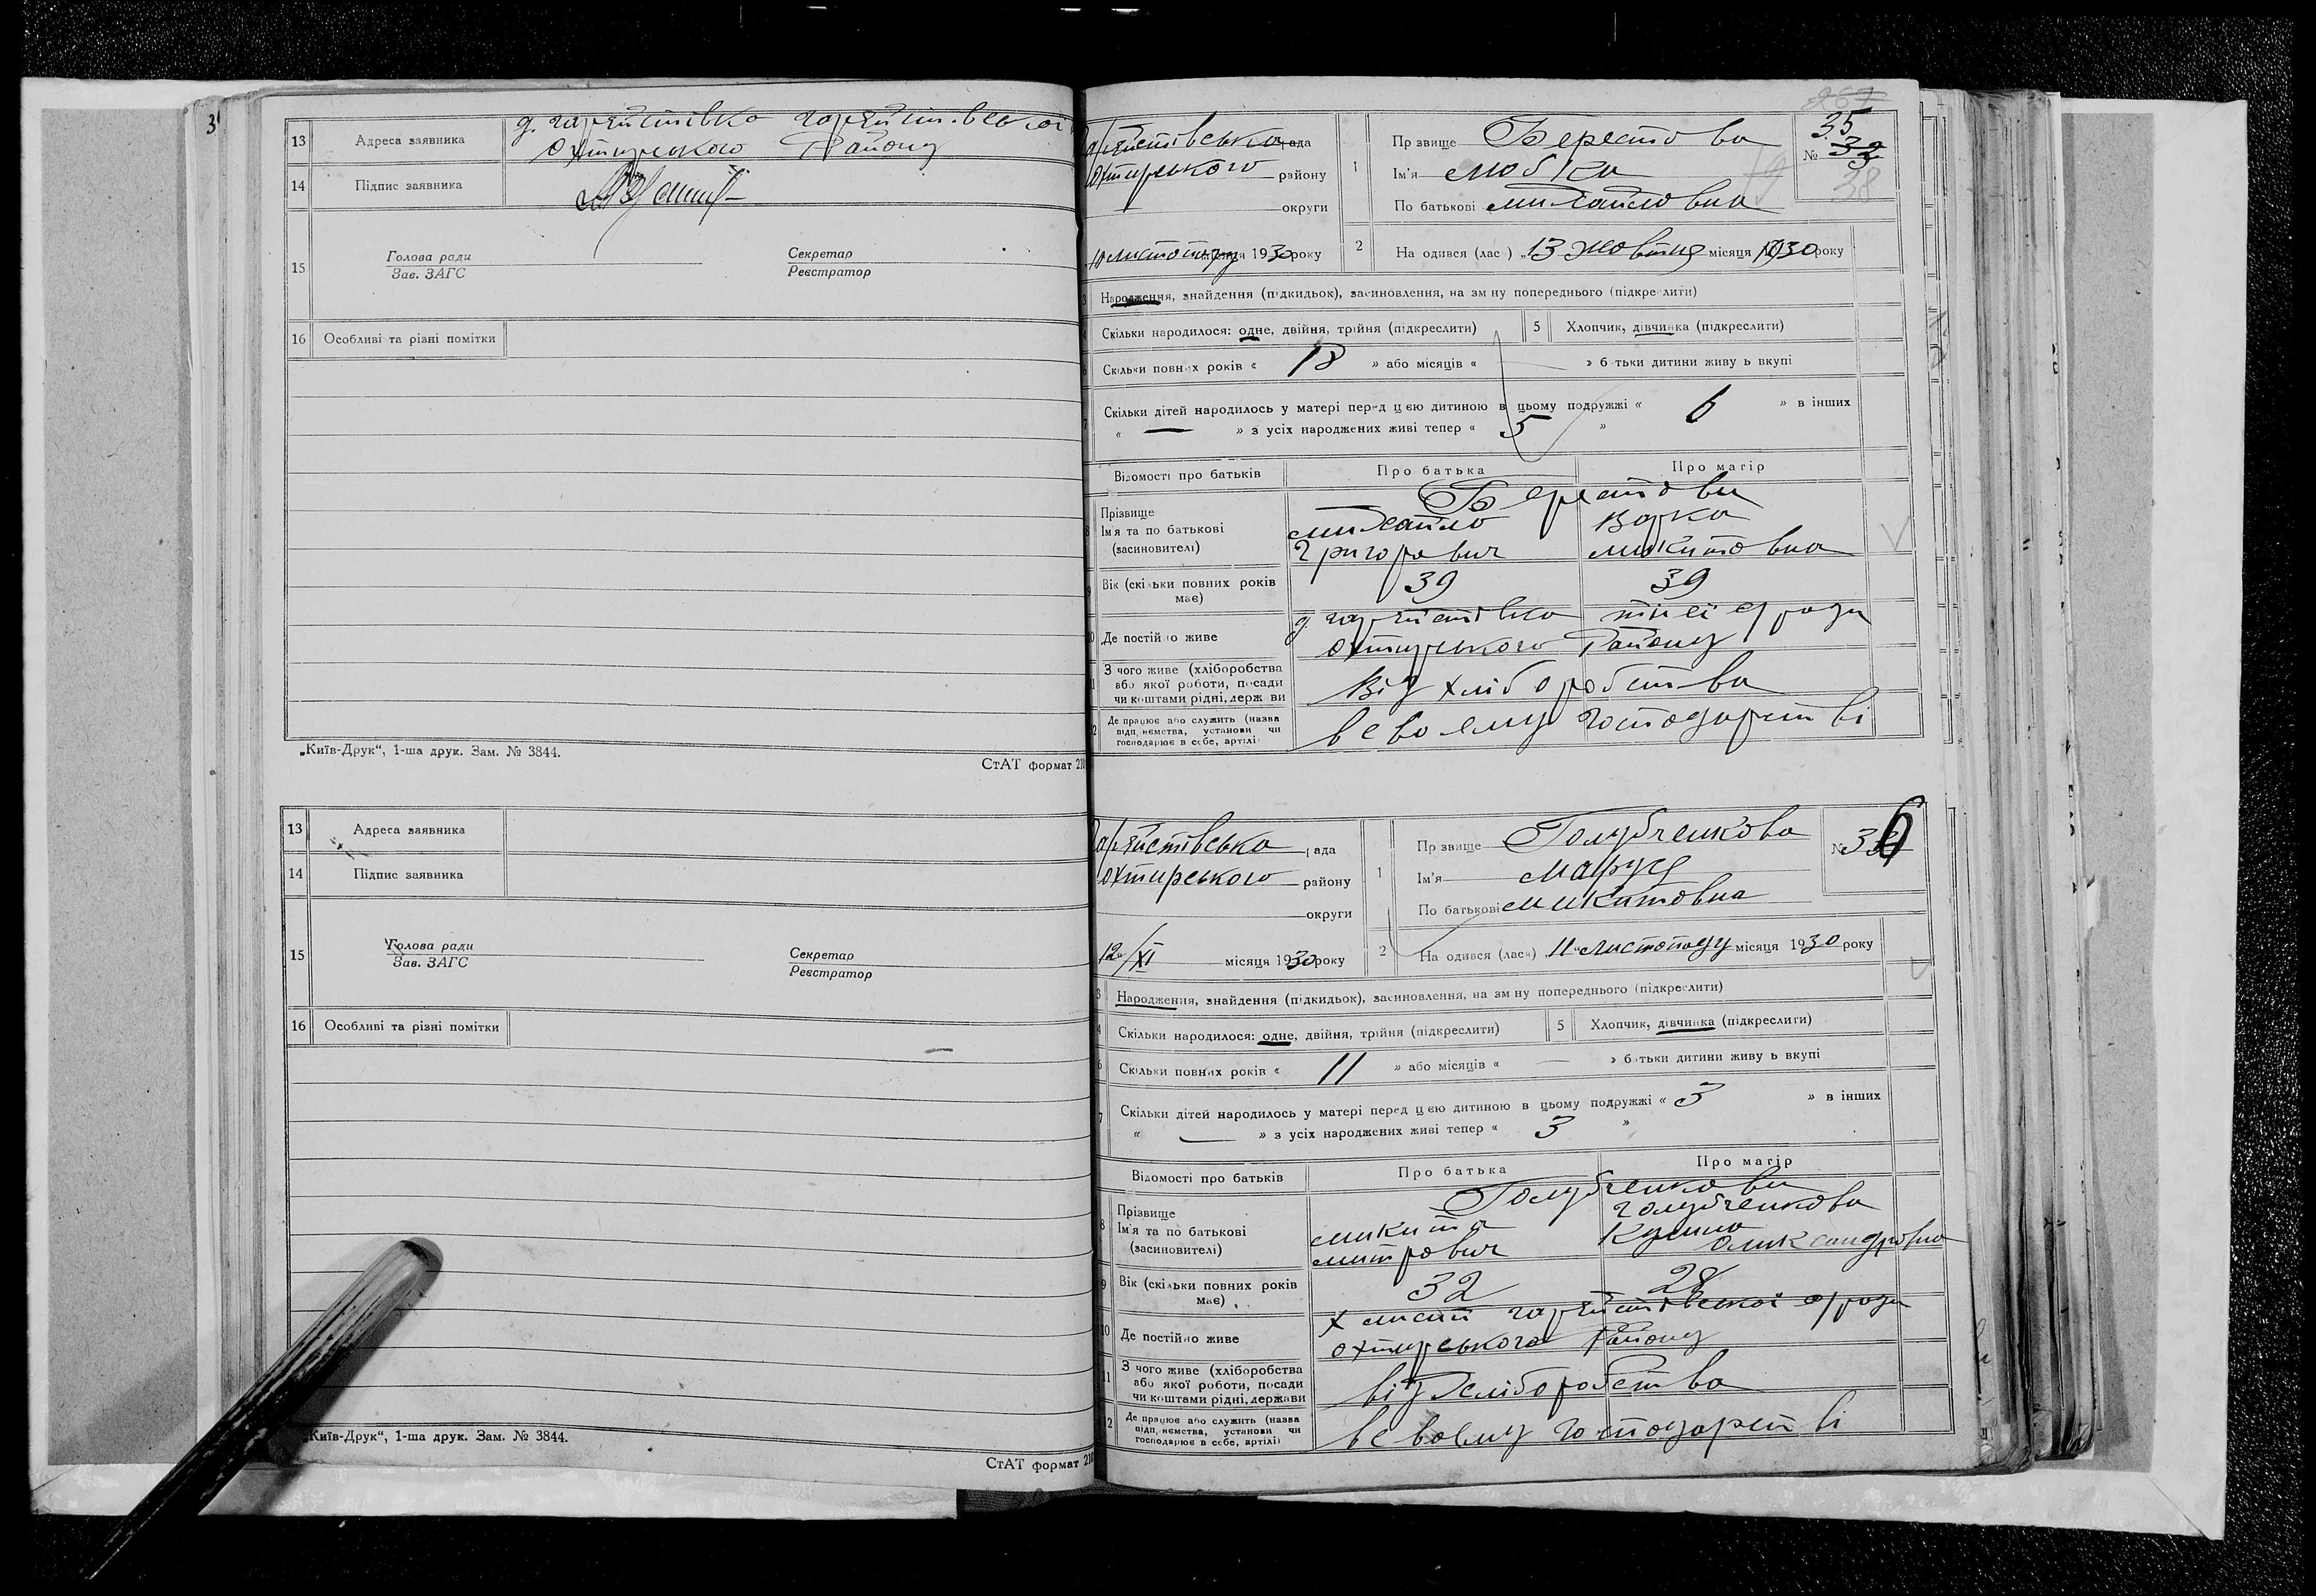 13 Адреса заявника
Охтирського Району
14 Підпис заявника
15 Голова ради Секретар
Зав. ЗАГС Реєстратор
16 Особливі та різні помітки
„Київ-Друк“, 1-ша друк. Зам. № 3844.
СтАТ формат 210
13 Адреса заявника
14 Підпис заявника
15 Голова ради Секретар
Зав. ЗАГС Реєстратор
16 Особливі та різні помітки
„Київ-Друк“, 1-ша друк. Зам. № 3844.
СтАТ формат 210
267
35
№ 32
38
рада
Охтирського району
округи
1 Прзвище Берестова
Ім'я Любка
По батькові Михайловна
10 листопаду місяця 1930 року
2 На одився (лас ) „13 жовтня місяця 1930 року
3 Народження, знайдення (підкидьок), засиновлення, на зм ну попереднього (підкреслити)
Скільки народилося: одне, двійня, трійня (підкреслити) 5 Хлопчик, дівчинка (підкреслити)
Скільки повних років « 18 » або місяців « — » б тьки дитини живу ь вкупі
7 Скільки дітей народилось у матері перед цією дитиною в цьому подружжі « 6 » в інших
« — » з усіх народжених живі тепер « 5 »
Відомості про батьків Про батька Про матір
Берестови
8 Прізвище
Ім'я та по батькові Михайло Варка
(засиновителі) Григорович Микитовна
9 Вік (скільки повних років 39 39
має)
10 Де постійно живе
Охтирського Району
11 З чого живе (хліборобства
або якої роботи, посади Від хліборобства
чи коштами рідні, держ ви
12 Де працює або служить (назва
підп, нємства, установи чи в своєму господарстві
господарює в себе, артілі)
рада
Охтирського району
округи
1 Пр звище Голубченкова
Ім'я Маруся
По батькові Микитовна
№ 33 6
12/XI місяця 1930 року
2 На одився (лася) „11“ листопаду місяця 1930 року
3 Народження, знайдення (підкидьок), засиновлення, на зм ну попереднього (підкреслити)
4 Скільки народилося: одне, двійня, трійня (підкреслити) 5 Хлопчик, дівчинка (підкреслити)
6 Скільки повних років « 11 » або місяців « — » б тьки дитини живу ь вкупі
7 Скільки дітей народилось у матері перед цією дитиною в цьому подружжі « 3 » в інших
« — » з усіх народжених живі тепер « 3 »
Відомості про батьків Про батька Про матір
Голубченкови
8 Прізвище Голубченкова
Ім'я та по батькові Микита
(засиновителі) Митрович Олександровна
9 Вік (скільки повних років 32 28
має)
10 Де постійно живе
Охтирського Району
11 З чого живе (хліборобства
або якої роботи, посади від хліборобства
чи коштами рідні, держави
12 Де працює або служить (назва
підп, нємства, установи чи в своєму господарстві
господарює в себе, артілі)